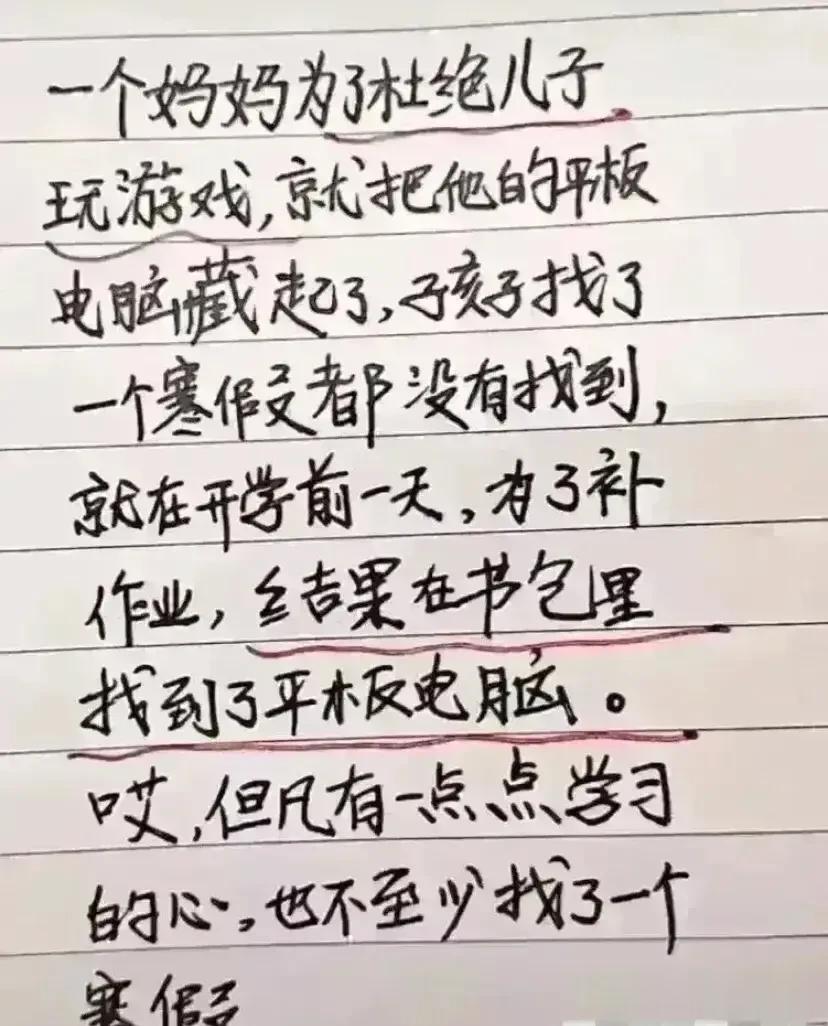 一个妈妈为了杜绝儿子
玩游戏,就把他的平板
电脑藏起了,孩子找了
一个寒假都没有找到,
就在开学前一天,为了补
作业,结果在书包里
找到了平板电脑。
哎,但凡有一点点学习
的心,也不至少找了一个
寒假